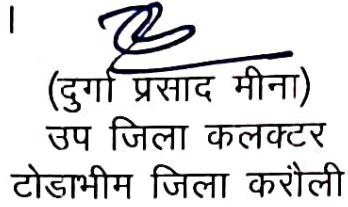 ।
(दुर्गा प्रसाद मीना)
उप जिला कलक्टर
टोडाभीम जिला करौली